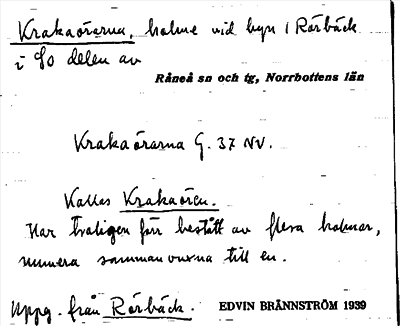 Krakaörarna, holme vid byn i Rörbäck
i SO delen av
Råneå sn och tg, Norrbottens län
Krakaörarna G. 37 NV.
Kallas Krakaören.
Har troligen förr bestått av flera holmar,
numera sammanvuxna till en.
Uppg. från Rörbäck.
EDVIN BRÄNNSTRÖM 1939